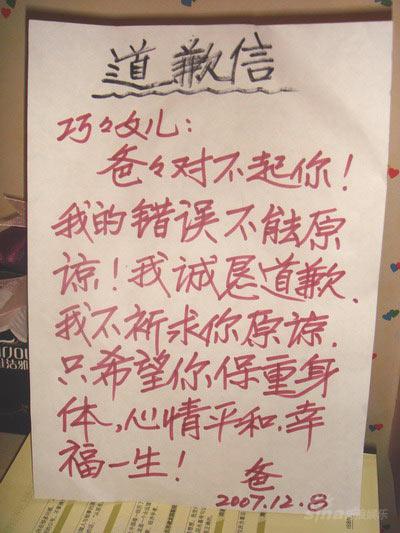 道歉信
巧々女儿：
爸々对不起你！
我的错误不能原
谅！我诚恳道歉.
我不祈求你原谅.
只希望你保重身
体,心情平和.幸
福一生！
爸
2007.12.8
sina新浪娱乐